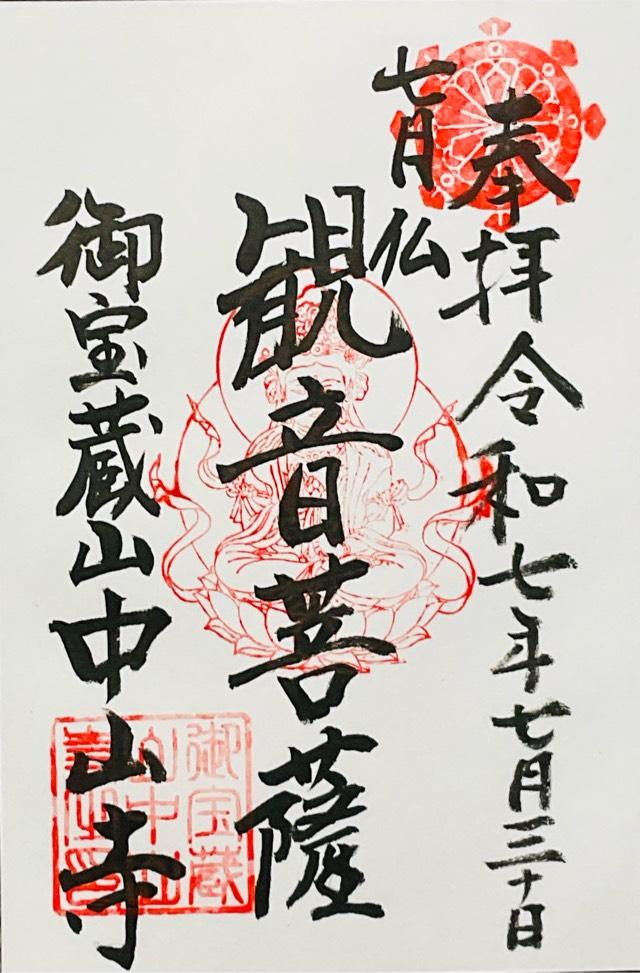 奉拝令和七年七月三十日
七月仏
観音菩薩
御宝蔵山中山寺
御宝蔵
山中山
寺之印